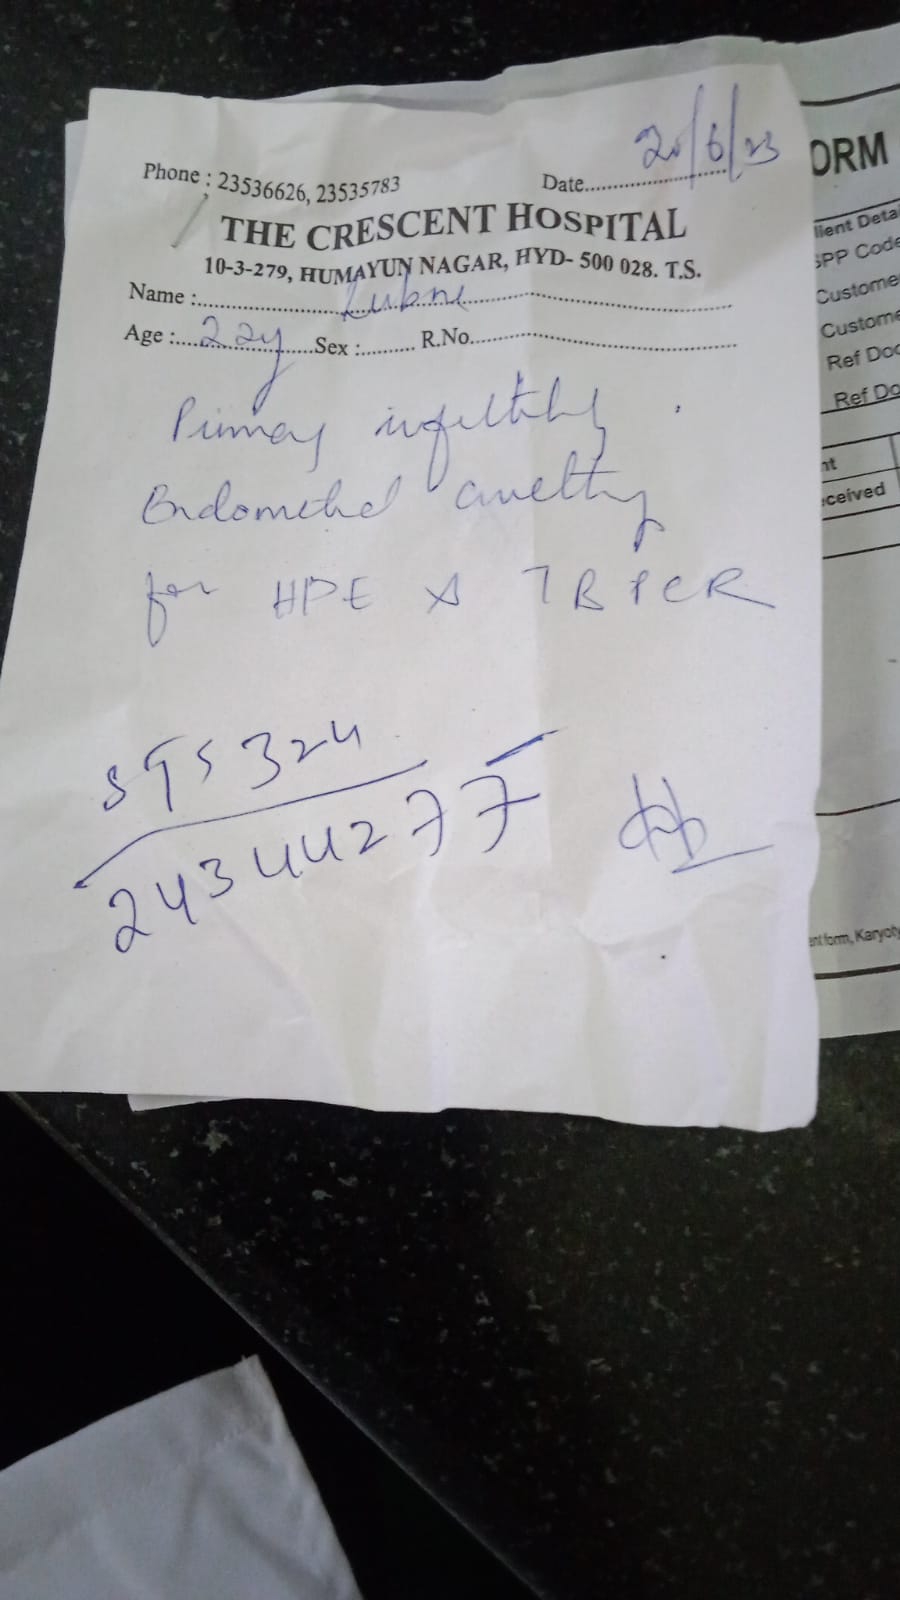 20/6/23
Phone : 23536626, 23535783 Date
THE CRESCENT HOSPITAL
10-3-279, HUMAYUN NAGAR, HYD- 500 028. T.S.
Name : Lubne
Age : 22y Sex : R.No.
Primary infertility
Endometrial curetting
for HPE & TB PCR
895324
24344277
ORM
lient Detai
SPP Code
Custome
Custome
Ref Doc
Ref Do
nt
ceived
ent form, Karyoty